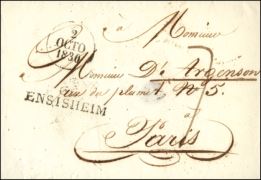 2
OCTO
1830
à Monsieur
Monsieur D'Argenson
rue de plumet, N° 5.
ENSISHEIM
à
Paris